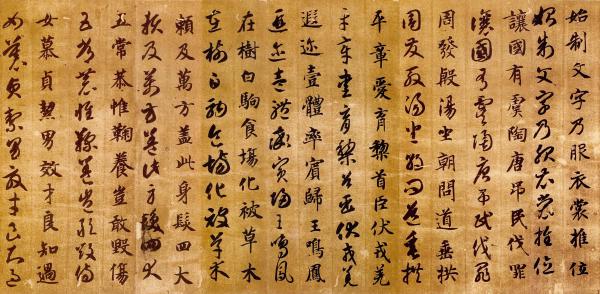 始制文字乃服衣裳推位
始制文字乃服衣裳推位
讓國有虞陶唐弔民伐罪
讓國有虞陶唐弔民伐罪
周發殷湯坐朝問道垂拱
周發殷湯坐朝問道垂拱
平章愛育黎首臣伏戎羌
平章愛育黎首臣伏戎羌
遐邇壹體率賓歸王鳴鳳
遐邇壹體率賓歸王鳴鳳
在樹白駒食場化被草木
在樹白駒食場化被草木
賴及萬方蓋此身髮四大
賴及萬方蓋此身髮四大
五常恭惟鞠養豈敢毀傷
五常恭惟鞠養豈敢毀傷
女慕貞絜男效才良知過
女慕貞絜男效才良知過